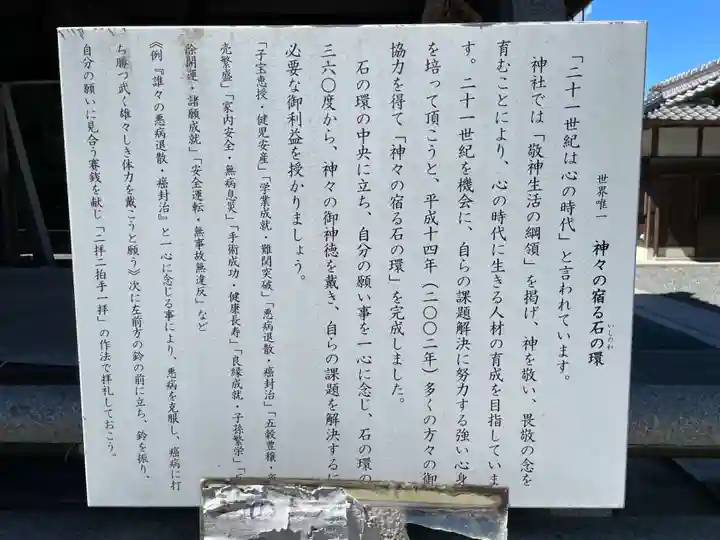 世界唯一 神々の宿る石の環
いしのわ
「二十一世紀は心の時代」と言われています。
神社では「敬神生活の綱領」を掲げ、神を敬い、畏敬の念を
育むことにより、心の時代に生きる人材の育成を目指していま
す。二十一世紀を機会に、自らの課題解決に努力する強い心身
を培って頂こうと、平成十四年（二〇〇二年）多くの方々の御
協力を得て「神々の宿る石の環」を完成しました。
石の環の中央に立ち、自分の願い事を一心に念じ、石の環の
三六〇度から、神々の御神徳を戴き、自らの課題を解決するに
必要な御利益を授かりましょう。
「子宝恵授・健児安産」「学業成就・難関突破」「悪病退散・癌封治」「五穀豊穣・商
売繁盛」「家内安全・無病息災」「手術成功・健康長寿」「良縁成就・子孫繁栄」
除開運・諸願成就」「安全運転・無事故無違反」など
《例『誰々の悪病退散・癌封治』と一心に念じる事により、悪病を克服し、癌病に打
ち勝つ武く雄々しき体力を戴こうと願う》次に左前方の鈴の前に立ち、鈴を振り、
自分の願いに見合う賽銭を献じ「二拝二拍手一拝」の作法で拝礼しておこう。